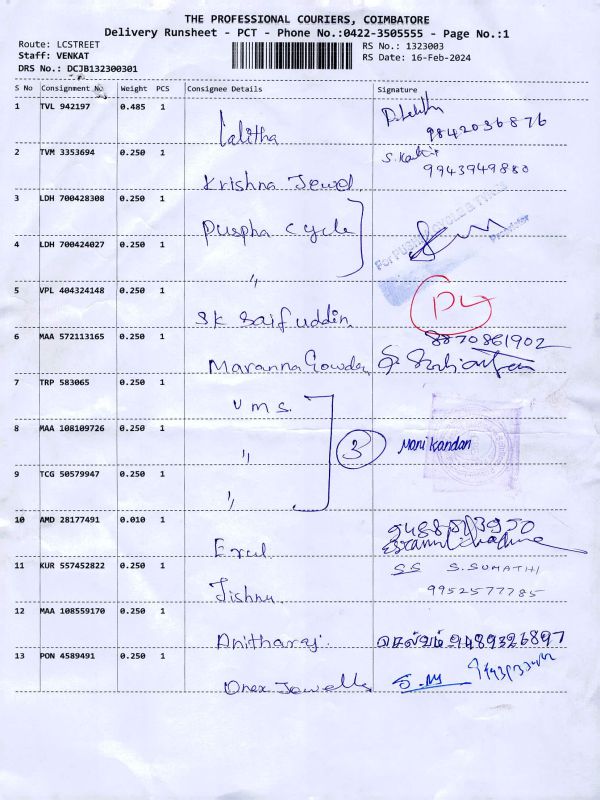 THE PROFESSIONAL COURIERS, COIMBATORE
Delivery Runsheet - PCT - Phone No.:0422-3505555 - Page No.:1
Route: LCSTREET
RS No.: 1323003
Staff: VENKAT
RS Date: 16-Feb-2024
DRS No.: DCJB132300301
S No Consignment No Weight PCS Consignee Details Signature
1 TVL 942197 0.485 1
Lalitha 9842036876
2 TVM 3353694 0.250 1
Krishna Jewel 9943949880
3 LDH 700428308 0.250 1
Puspha cycle
4 LDH 700424027 0.250 1
"
5 VPL 404324148 0.250 1
SK Saifuddin
6 MAA 572113165 0.250 1 8870861902
Maranna Gowder
7 TRP 583065 0.250 1
V M S.
8 MAA 108109726 0.250 1
" 3 Manikandan
9 TCG 50579947 0.250 1
"
10 AMD 28177491 0.010 1
11 KUR 557452822 0.250 1 SS S.SUMATHI
Jishnu. 9952577785
12 MAA 108559170 0.250 1
Anitharaj. செல்வம் 9489326897
13 PON 4589491 0.250 1
Onex Jewells